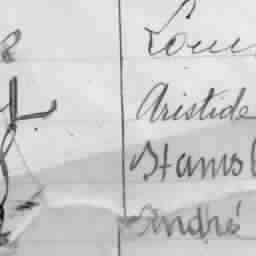 Louis
Aristide
Stanisl
André